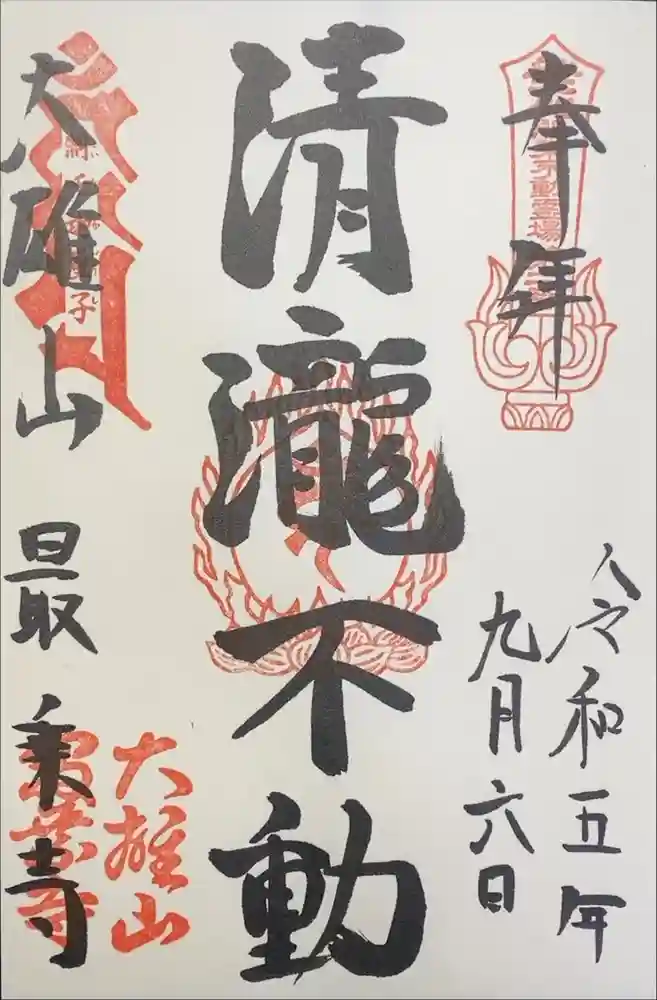 奉拝
不動霊場
令和五年
九月六日
清瀧不動
大雄山
最乗寺
大雄山
最乗寺